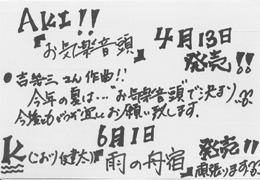 AKI!!
『お気楽音頭』
4月13日
発売!!
●吉幾三さん作曲!!
今年の夏は…"お気楽音頭"で決まり
今後ともどうぞ宜しくお願い致します。
6月1日
K(こおり健太)『雨の舟宿』発売!!
頑張ります